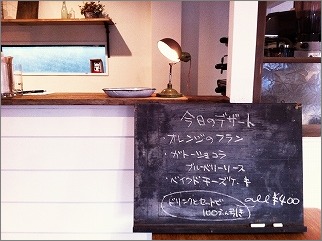 今日のデザート
・オレンジのフラン
・ガトーショコラ
ブルーベリーソース
・ベイクドチーズケーキ
all ¥400
ドリンクとセットで
100えん引き